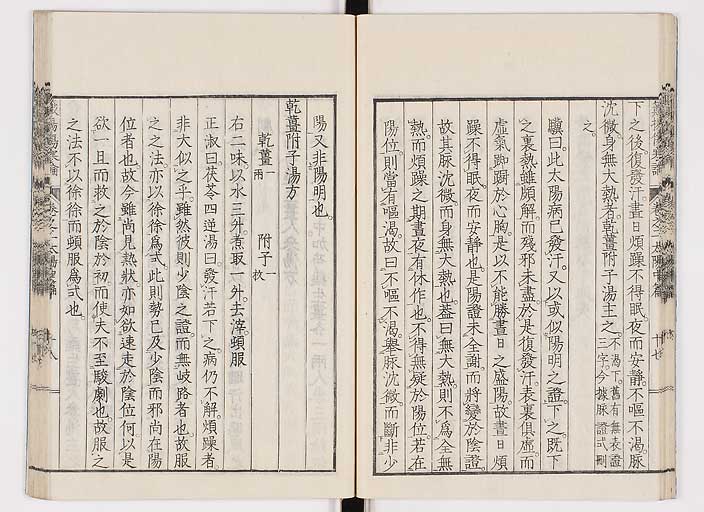 下之後復發汗晝日煩躁不得眠夜而安靜不嘔不渴脈
沈微身無大熱者乾薑附子湯主之不渴下舊有無表證
三字今據脈證式刪
之
驥曰此太陽病已發汗又以或似陽明之證下之既下
之裏熱雖頗解而殘邪未盡於是復發汗表裏俱虛而
虛氣踟躕於心胸是以不能勝晝日之盛陽故晝日煩
躁不得眠夜而安靜也是陽證未全謝而將變於陰證
故其脈沈微而身無大熱也蓋曰無大熱則不爲全無
熱而煩躁之期晝夜有休作也不得無疑於陽位若在
陽位則當有嘔渴故曰不嘔不渴舉脈沈微而斷非少
陽又非陽明也
乾薑附子湯方
乾薑一兩 附子一枚
右二味以水三升煮取一升去滓頓服
正淑曰茯苓四逆湯曰發汗若下之病仍不解煩躁者
非大似之乎雖然彼則少陰之證而無岐路者也故服
之之法亦以徐徐爲式此則勢已及少陰而邪尚在陽
位者也故今雖尚見熱狀亦如欲速走於陰位何以是
欲一且而救之於陰於初而使夫不至駿劇也故服之
之法不以徐徐而頓服爲式也